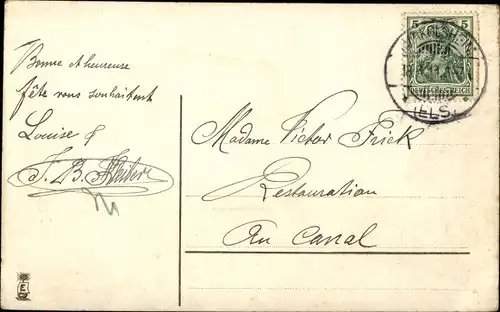 Bonne et heureuse
fête vous souhaitent
Louise &
J. B.
Madame Victor Frick
Restauration
Au Canal
5 5
DEUTSCHES REICH
(ELS.)
E